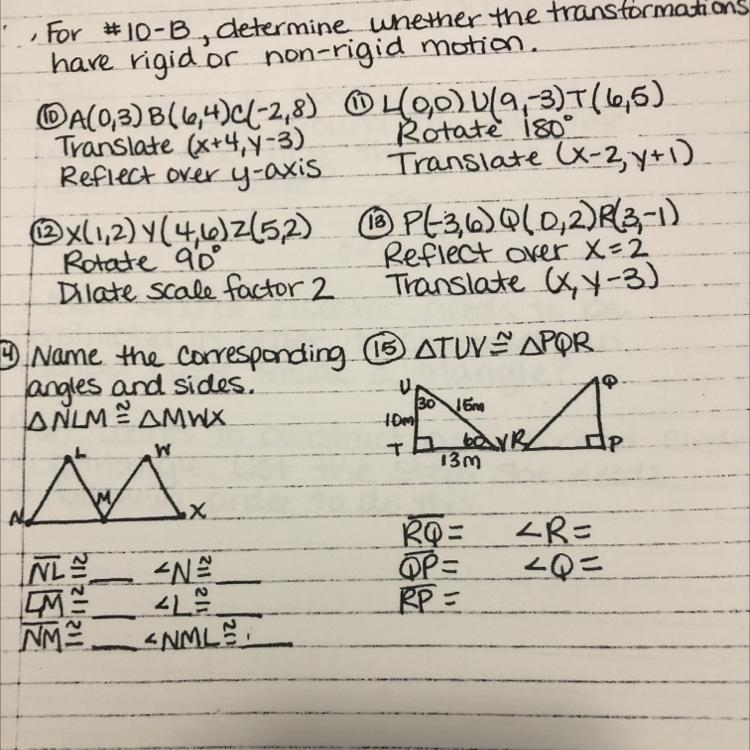 For #10-B, determine whether the transformations
have rigid or non-rigid motion.
⑩ A(0,3) B(6,4) C(-2,8)
Translate (x+4, y-3)
Reflect over y-axis
⑪ L(0,0) U(9,-3) T(6,5)
Rotate 180°
Translate (x-2, y+1)
⑫ X(1,2) Y(4,6) Z(5,2)
Rotate 90°
Dilate scale factor 2
⑬ P(-3,6) Q(0,2) R(3,-1)
Reflect over x=2
Translate (x, y-3)
4 Name the corresponding
angles and sides.
△NLM ≅ △MWX
L W
N M X
NL ≅ __ ∠N ≅ __
LM ≅ __ ∠L ≅ __
NM ≅ __ ∠NML ≅ __
⑮ △TUV ≅ △PQR
U Q
30 15m
10m
T 60 V R P
13m
RQ = ∠R =
QP = ∠Q =
RP =